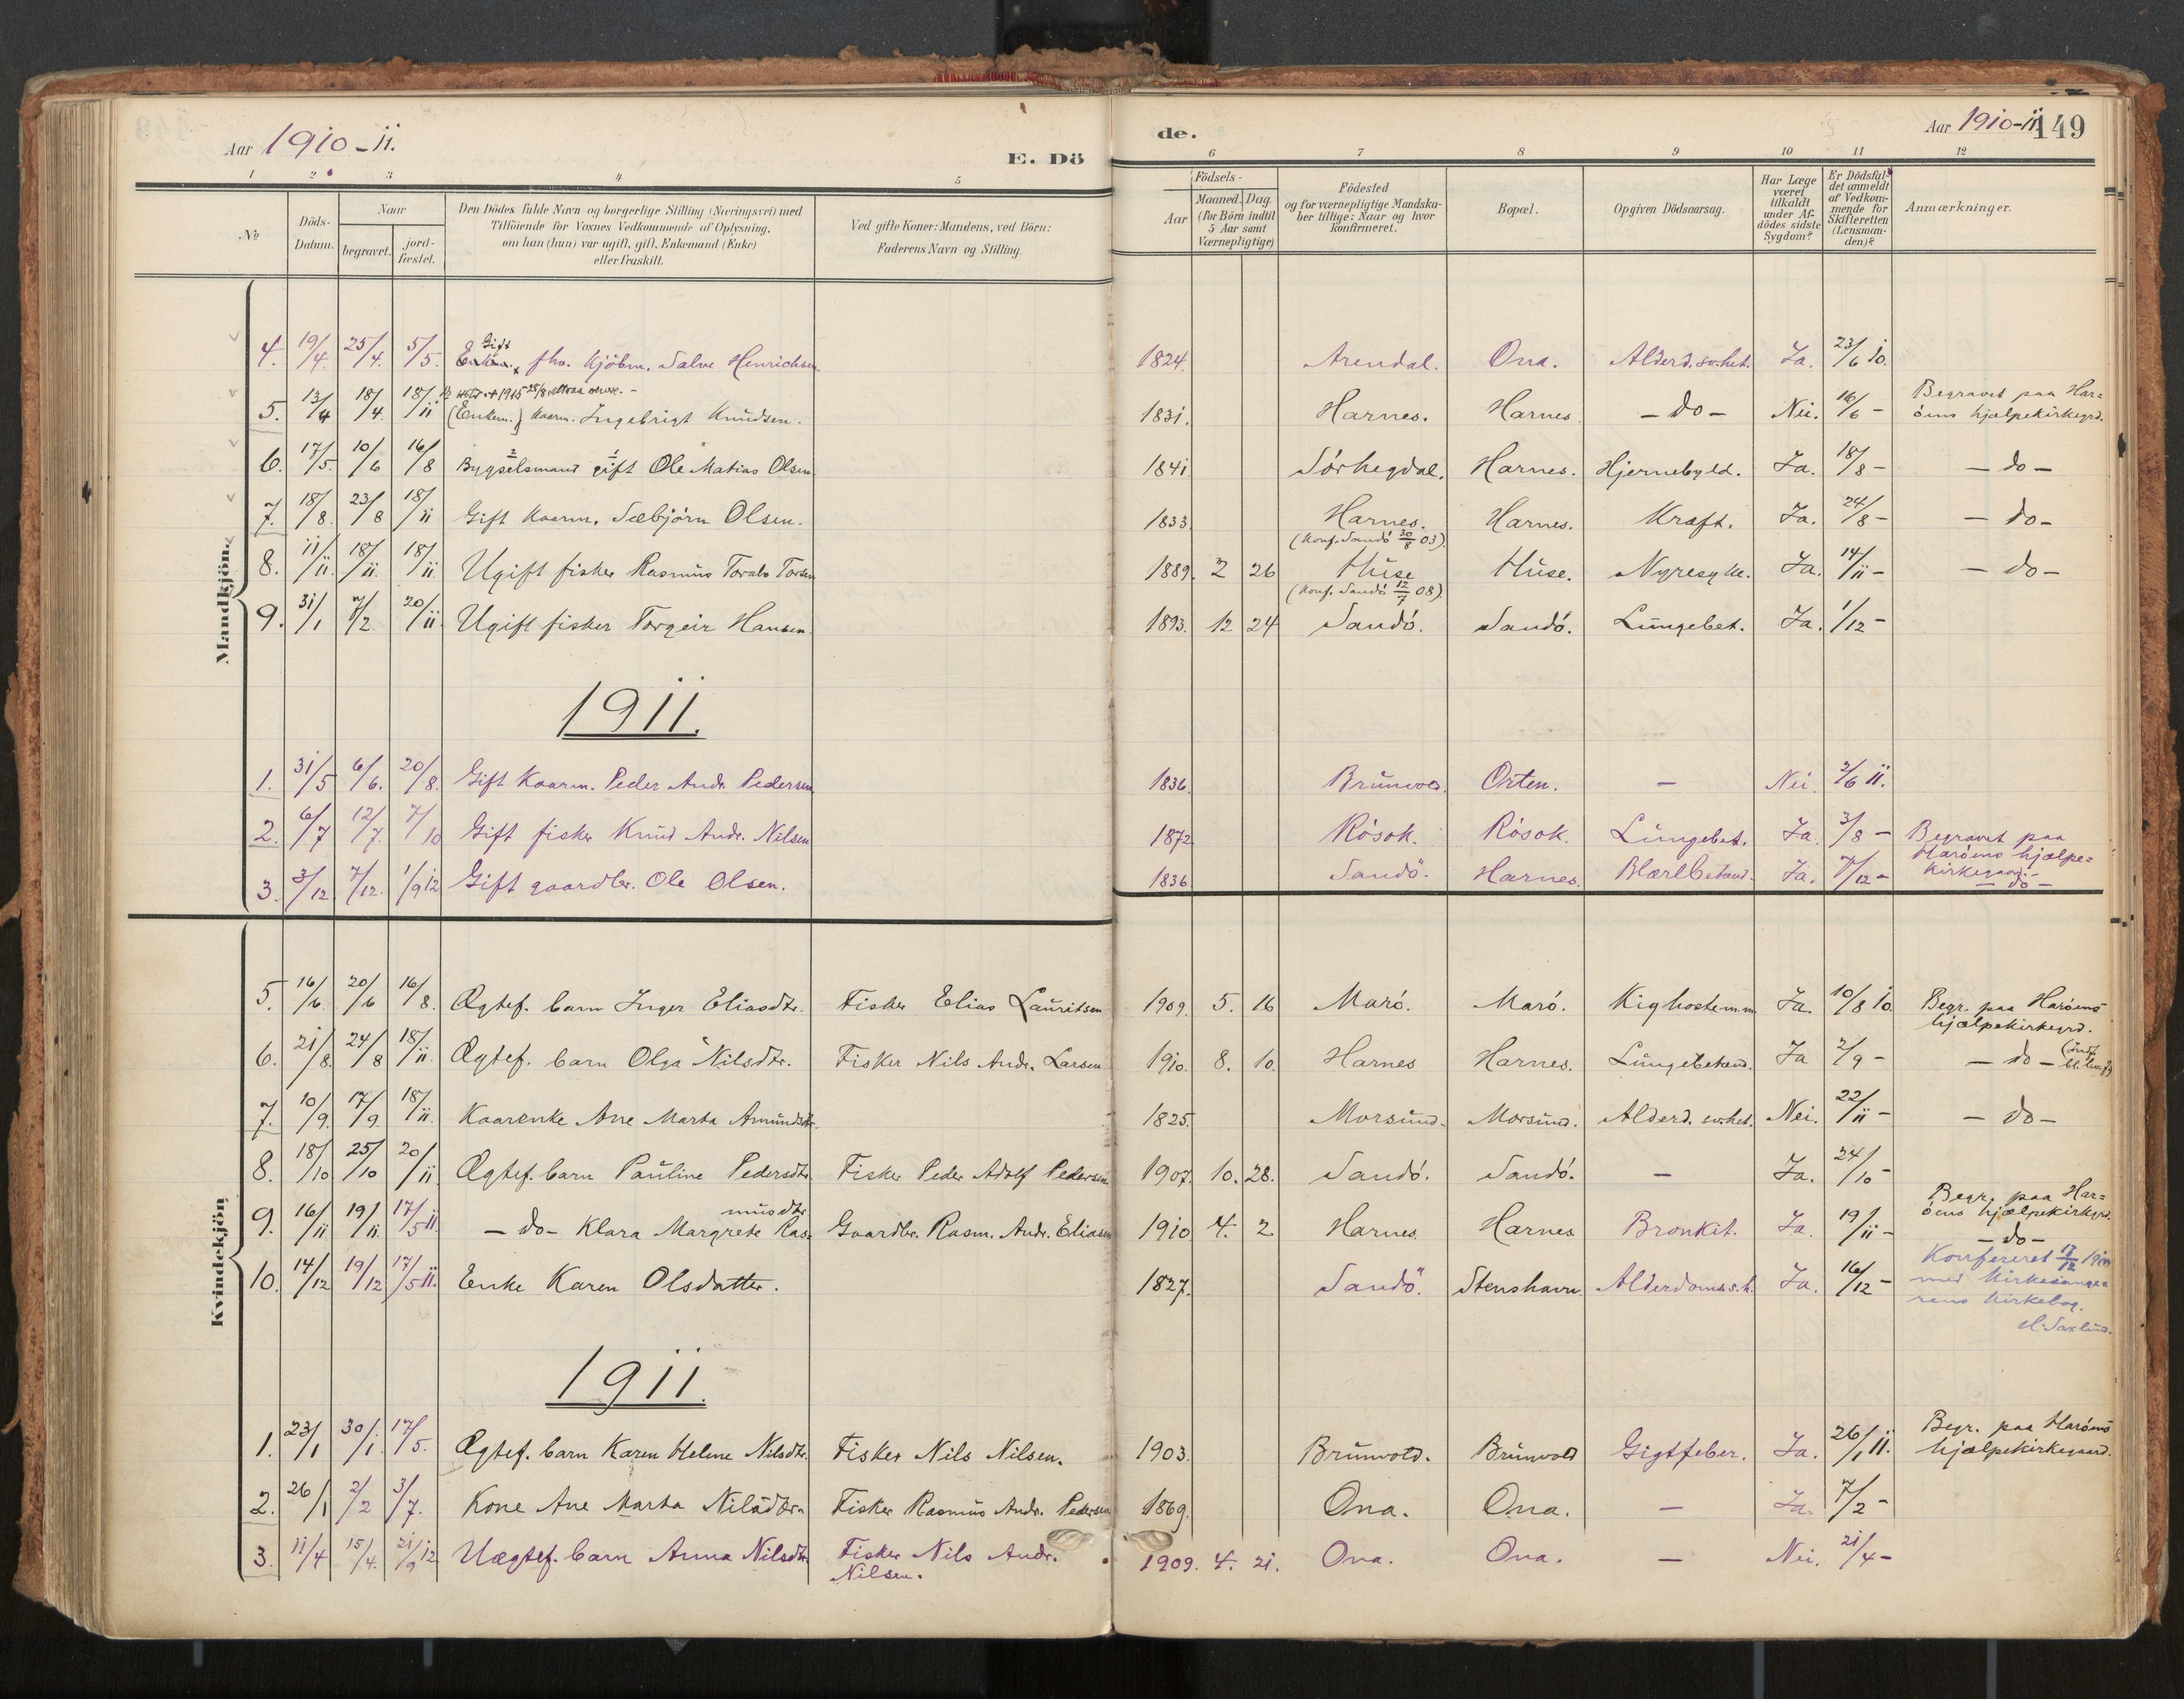 Aar 1910-11.
E. Dö
de.
Aar 1910-11
149
1 2 3 4 5 6 7 8 9 10 11 12
No
Döds-Datum.
Naar
begravet.
jord-fæstet.
Den Dödes fulde Navn og borgerlige Stilling (Næringsvei) med
Tilföiende for Voxnes Vedkommende af Oplysning,
om han (hun) var ugift, gift, Enkemand (Enke)
eller fraskilt.
Ved gifte Koner: Mandens, ved Börn:
Faderens Navn og Stilling.
Födsels-
Aar
Maaned. Dag.
(for Börn indtil
5 Aar samt
Værnepligtige)
Födested
og for værnepligtige Mandska-
ber tillige: Naar og hvor
konfirmeret.
Bopæl.
Opgiven Dödsaarsag.
Har Læge
været
tilkaldt
under Af-
dödes sidste
Sygdom?
Er Dödsfal-
det anmeldt
af Vedkom-
mende for
Skifteretten
(Lensman-
den)?
Anmærkninger.
Mandkjön.
Gift
4. 19/4. 25/4. 5/5. fhv. Kjöbm. Salve Henrichsen. 1824. Arendal. Ona. Alderd.svhet. Ja. 23/6 10.
5. 13/4 18/4. 18/11 (Enkem.) Kaarm. Ingebrigt Knudsen. 1831. Harnes. Harnes. -do- Nei. 16/6 - Begravet paa Har=
öens hjælpekirkegrd.
6. 17/5. 10/6 16/8 Bygselsmand gift Ole Matias Olsen 1841. Sörhegdal. Harnes. Hjernebyld. Ja. 18/8 - - do -
7. 18/8. 23/8 18/11 Gift Kaarm. Sæbjörn Olsen. 1833. Harnes. Harnes. Kræft. Ja. 24/8 - - do -
(Konf. Sandö 30/8 03)
8. 11/11. 18/11. 18/11 Ugift fisker Rasmus Torvals Torsen 1889. 2 26 Huse Huse. Nyresyke. Ja. 14/11 - - do -
(Konf. Sandö 12/7 08)
9. 31/1 7/2. 20/11. Ugift fisker Torgeir Hansen. 1893. 12 24 Sandö. Sandö. Lungebet. Ja. 1/12 -
1911.
1. 31/5 6/6. 20/8. Gift Kaarm. Peder Andr. Pedersen 1836. Brunvold. Orten. - Nei. 2/6 11.
2. 6/7 12/7. 7/10 Gift fisker Knud Andr. Nilsen 1872 Rösok. Rösok. Lungebet. Ja. 3/8 - Begravet paa
Haröens hjælpe=
kirkegaard.
3. 3/12 7/12. 1/9 12 Gift gaardbr. Ole Olsen. 1836 Sandö. Harnes. Ja. 7/12 - - do -
Kvindekjön
5. 16/6. 20/6 16/8. Ægtef. barn Inger Eliasdtr. Fisker Elias Lauritsen 1909. 5. 16 Marö. Marö. Kighoste m.m. Ja. 10/8 10. Begr. paa Haröens
hjælpekirkegrd.
6. 21/8. 24/8 18/11. Ægtef. barn Olga Nilsdtr. Fisker Nils Andr. Larsen 1910. 8. 10. Harnes Harnes. Lungebetend. Ja 2/9 - - do -
7. 10/9. 17/9. 18/11. Kaarenke Ane Marta Amundsdtr. 1825. Morsund. Morsund. Alderd. svhet. Nei. 22/11 - - do -
8. 18/10 25/10 20/11 Ægtef. barn Pauline Pedersdtr. Fisker Peder Adolf Pedersen 1907. 10. 28. Sandö. Sandö. - Ja. 24/10 -
musdtr.
9. 16/11 19/11. 17/5 11. - do - Klara Margrete Ras= Gaardbr. Rasm. Andr. Eliasen 1910 4. 2 Harnes. Harnes Bronkit. Ja. 19/11 - Begr. paa Har=
öens hjælpekirkegrd.
10. 14/12 19/12 17/5 11. Enke Karen Olsdatter. 1827. Sandö. Stenshavn. Alderdoms s.h. Ja. 16/12 - - do -
Konfereret 17/12 1910
med Kirkesange=
rens Kirkebog.
H. Saxlund.
1911.
1. 23/1 30/1. 17/5. Ægtef. barn Karen Helene Nilsdtr. Fisker Nils Nilsen. 1903. Brunvold. Brunvold Gigtfeber. Ja. 26/1 11. Begr. paa Haröens
hjælpekirkegaard.
2. 26/1 2/2 3/7. Kone Ane Marta Nilsdtr. Fisker Rasmus Andr. Pedersen 1869. Ona. Ona. - Ja. 7/2 -
3. 11/4 15/4. 21/9 12 Uægtef. barn Anna Nilsdtr. Fisker Nils Andr.
Nilsen. 1909. 4. 21. Ona. Ona. - Nei. 21/4 -